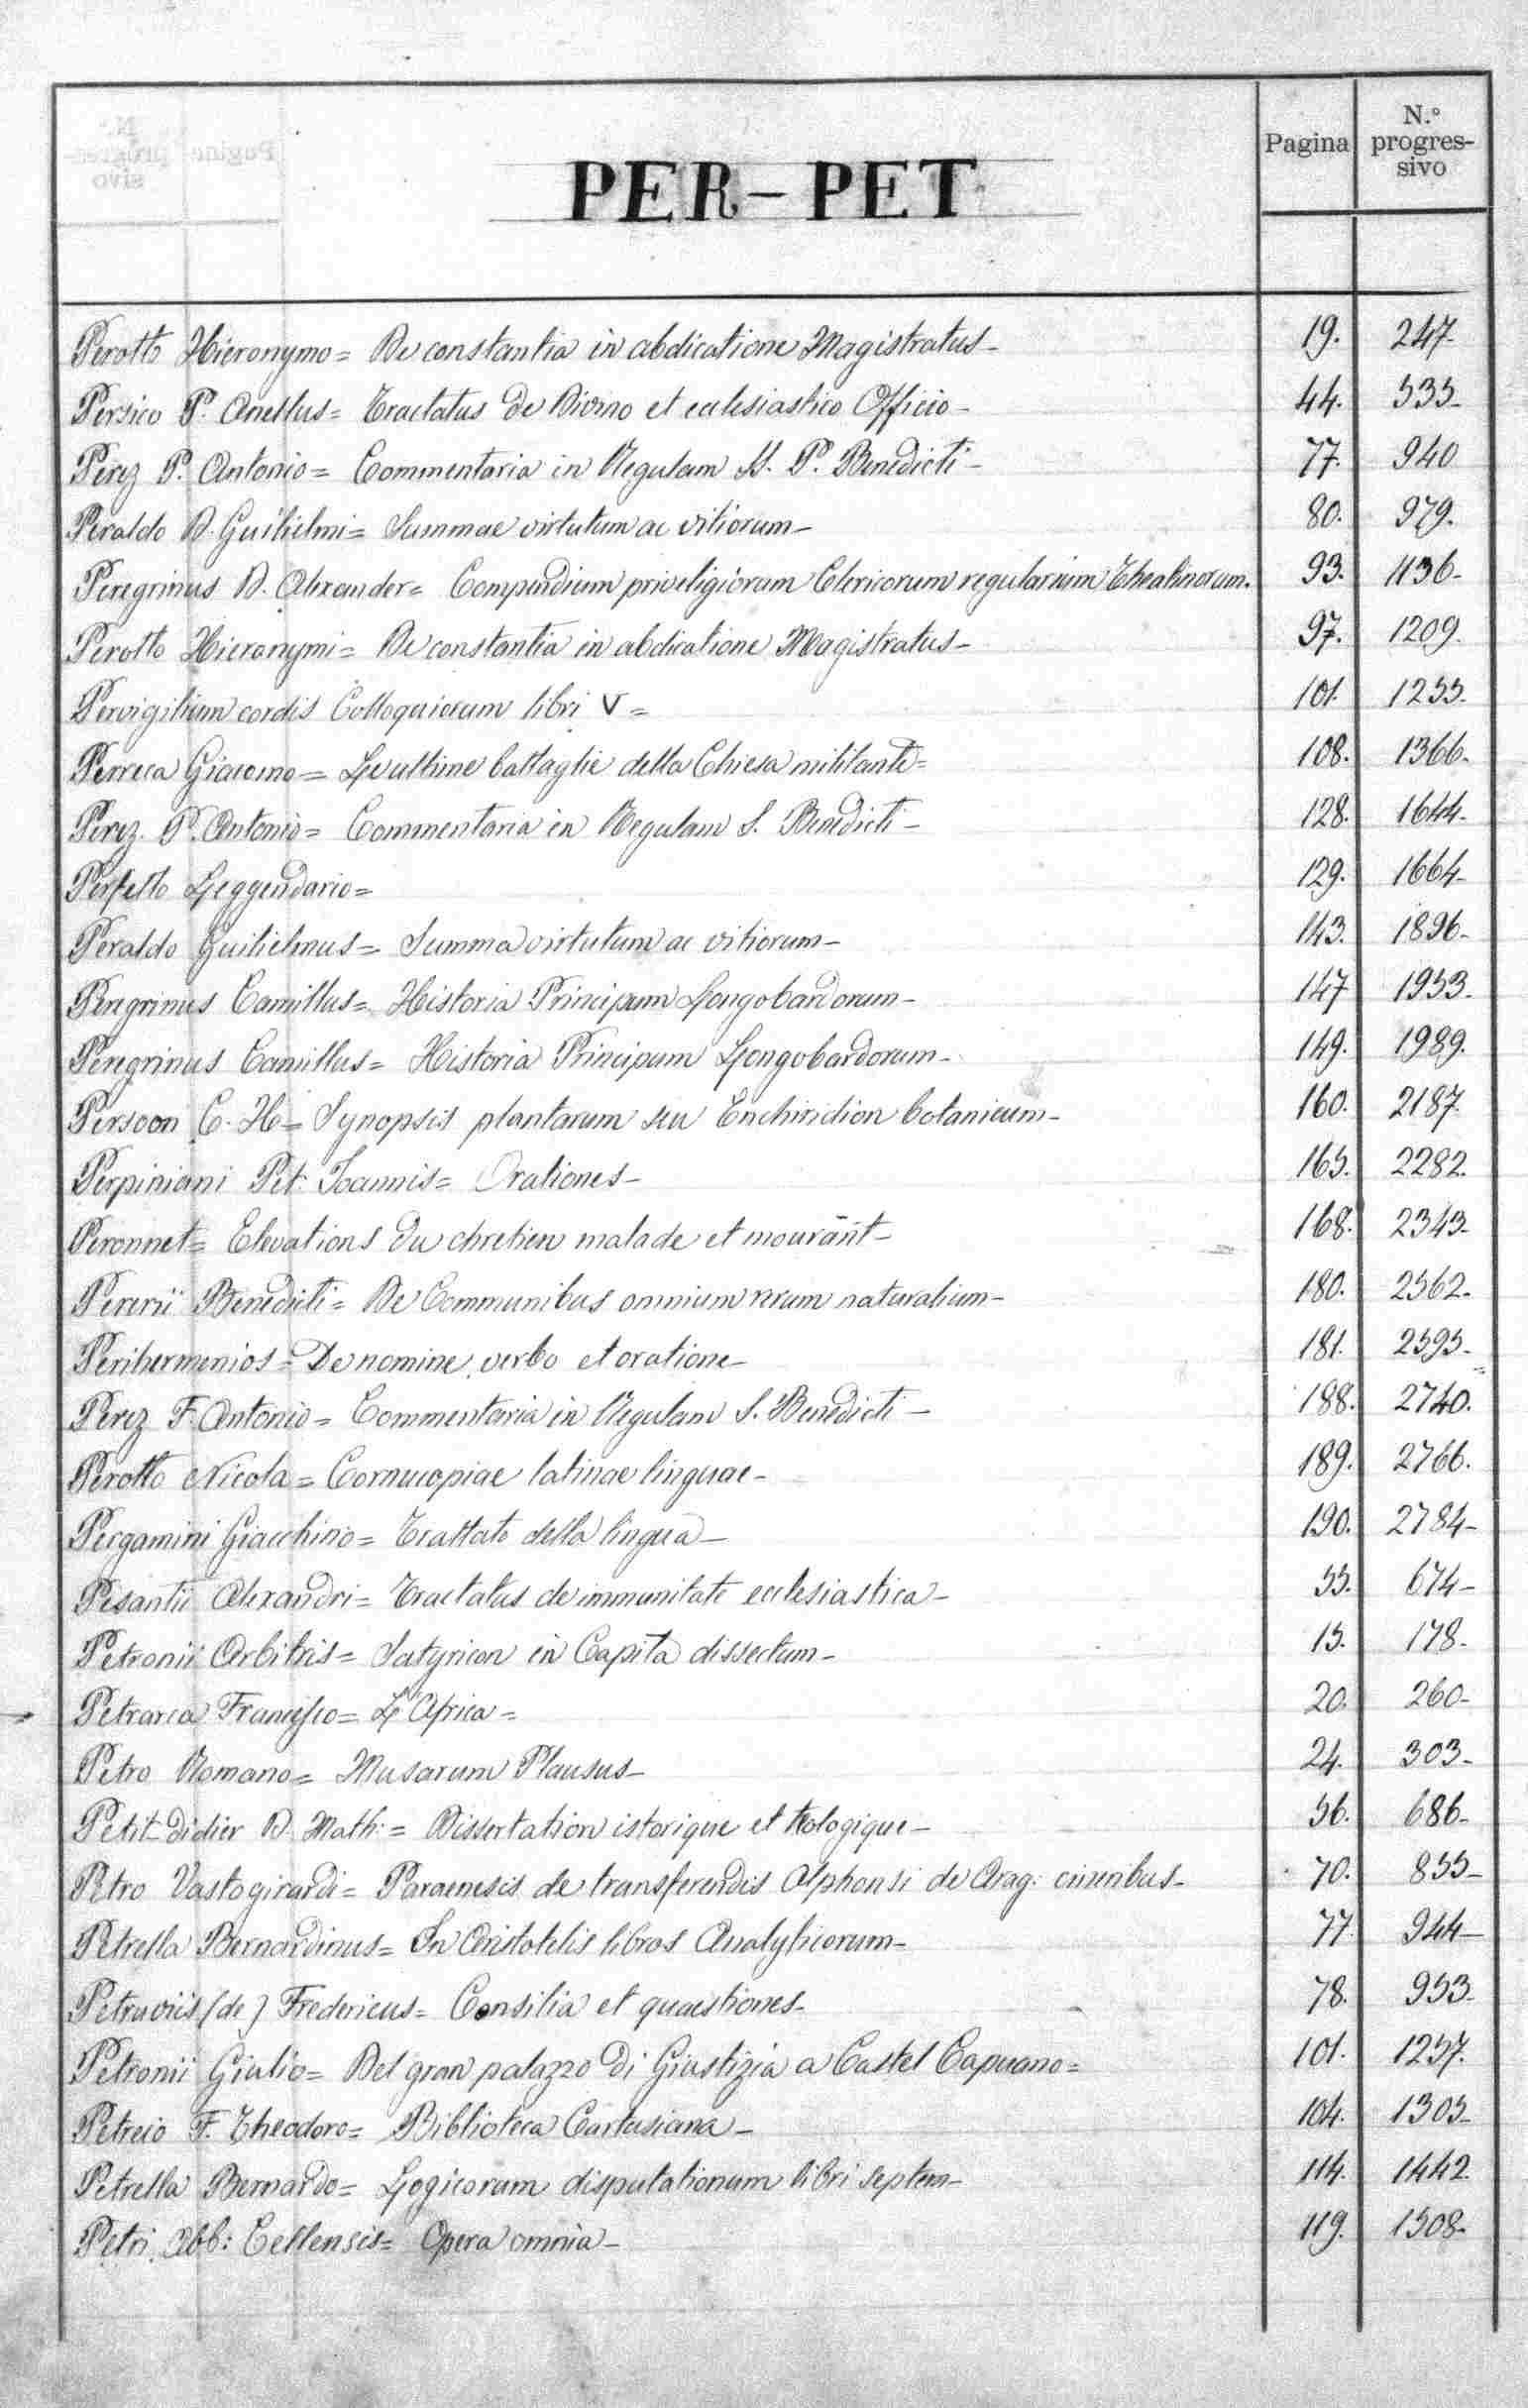 Pagina N.º progressivo
PER-PET
Perotto Hieronymo= De constantia in abdicatione Magistratus- 19. 247-
Persico P. Anellus= Tractatus de Divino et ecclesiastico Officio- 44. 535-
Perez P. Antonio= Commentaria in Regulam SS. P. Benedicti- 77. 940
Peraldo D. Guilielmi= Summae virtutum ac vitiorum- 80. 979.
Peregrinus D. Alexander= Compendium priveligiorum Clericorum regularium Theatinorum. 93. 1136-
Perotto Hieronymi= De constantia in abdicatione Magistratus- 97. 1209.
Pervigilium cordis Colloquiorum libri V= 101. 1255.
Perreca Giacomo= Le ultime battaglie della Chiesa militante= 108. 1366-
Perez. P. Antonio= Commentaria in Regulam S. Benedicti- 128. 1644-
Perfetto Leggendario= 129. 1664-
Peraldo Guilielmus= Summa virtutum ac vitiorum- 143. 1896-
Peregrinus Camillus= Historia Principum Longobardorum- 147 1953.
Peregrinus Camillus= Historia Principum Longobardorum- 149. 1989.
Persoon C. H= Synopsis plantarum seu Enchiridion botanicum- 160. 2187.
Perpiniani Pet: Joannis= Orationes- 165. 2282.
Peronnet= Elevations du chretien malade et mourant- 168. 2343-
Pererii Benedicti= De Communibus omnium rerum naturalium- 180. 2562-
Perihermenios= De nomine, verbo et oratione- 181. 2595-
Perez F. Antonio= Commentaria in Regulam S. Benedicti- 188. 2740.
Perotto Nicola= Cornucopiae latinae linguae- 189. 2766.
Pergamini Giacchino= Trattato della lingua- 190. 2784-
Pesantii Alexandri= Tractatus de immunitate ecclesiastica- 55. 674-
Petronii Arbitris= Satyricon in Capita dissectum- 15. 178-
Petrarca Francesco= L'Africa= 20. 260-
Petro Romano= Musarum Plausus- 24. 303-
Petit-didier D. Math:= Dissertation istorique et teologique- 56. 686-
Petro Vastogirardi= Paraenesis de transferendis Alphonsi de Arag: cineribus- 70. 855-
Petrella Bernardinus= In Aristotelis libros Analyticorum- 77. 944-
Petruviis (de) Fredericus= Consilia et quaestiones- 78. 953-
Petronii Giulio= Del gran palazzo di Giustizia a Castel Capuano= 101. 1257.
Petreio F. Theodoro= Biblioteca Cartusiana- 104. 1305-
Petrella Bernardo= Logicorum disputationum libri septem- 114. 1442.
Petri, Abb: Cellensis= Opera omnia- 119. 1508-